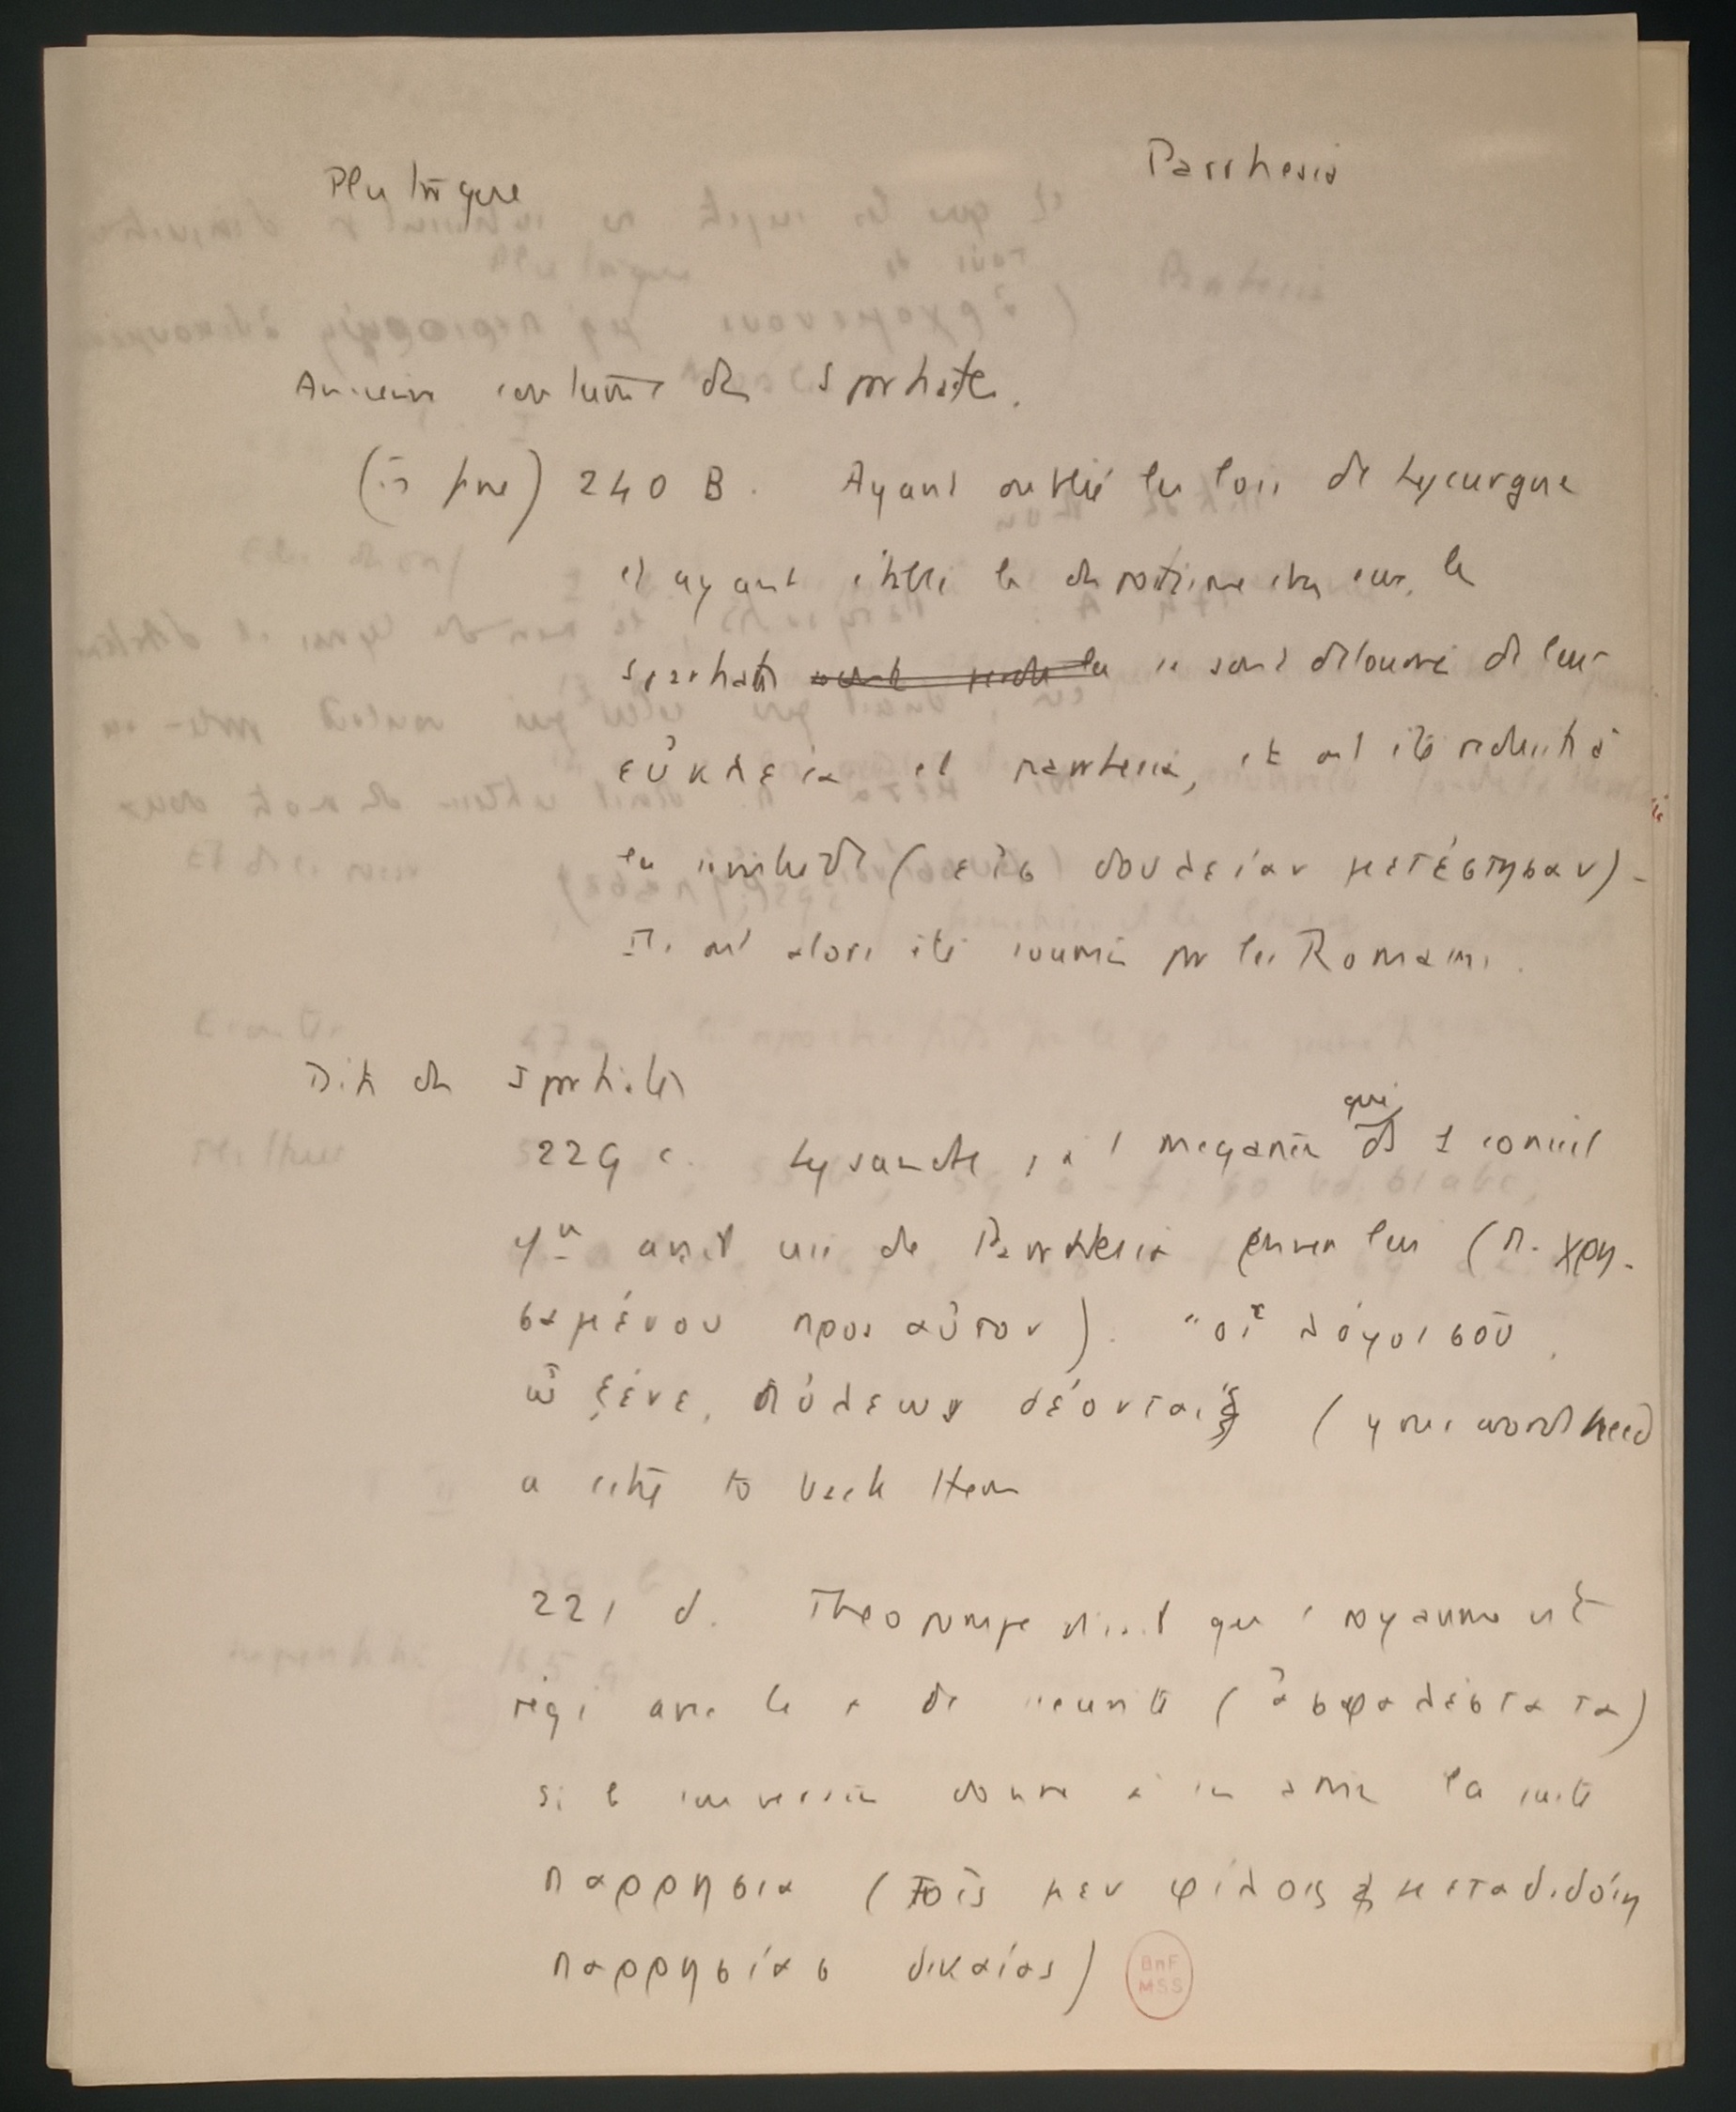 Plutarque
Parrhesia
Anciennes coutumes des Spartiates.
(in fine) 240 B. Ayant oublié les lois de Lycurgue
et ayant établi le despotisme chez eux, les
Spartiates se sont détourné de leur
εὐκλεία et parrhesia, et ont été réduits à
la servitude (εἰς δουλείαν μετέστησαν) -
Ils ont alors été soumis par les Romains.
Dits des Spartiates
229 c. Lysandre, à 1 mégarien qui ds 1 conseil
avait usé de Parrhesia envers lui (π. χρη-
σαμένου προς αὐτον). "οἱ λόγοι σοῦ,
ὦ ξένε, πόλεως δέονται (your words need
a city to back them
221 d. Théopompe disait qu'1 royaume est
régi avec le + de sécurité (ἀσφαλέστατα)
si le souverain donne à ses amis la juste
παρρησια (τοῖς μεν φίλοις μεταδιδόιη
παρρησίας δικαίας)
BnF
MSS